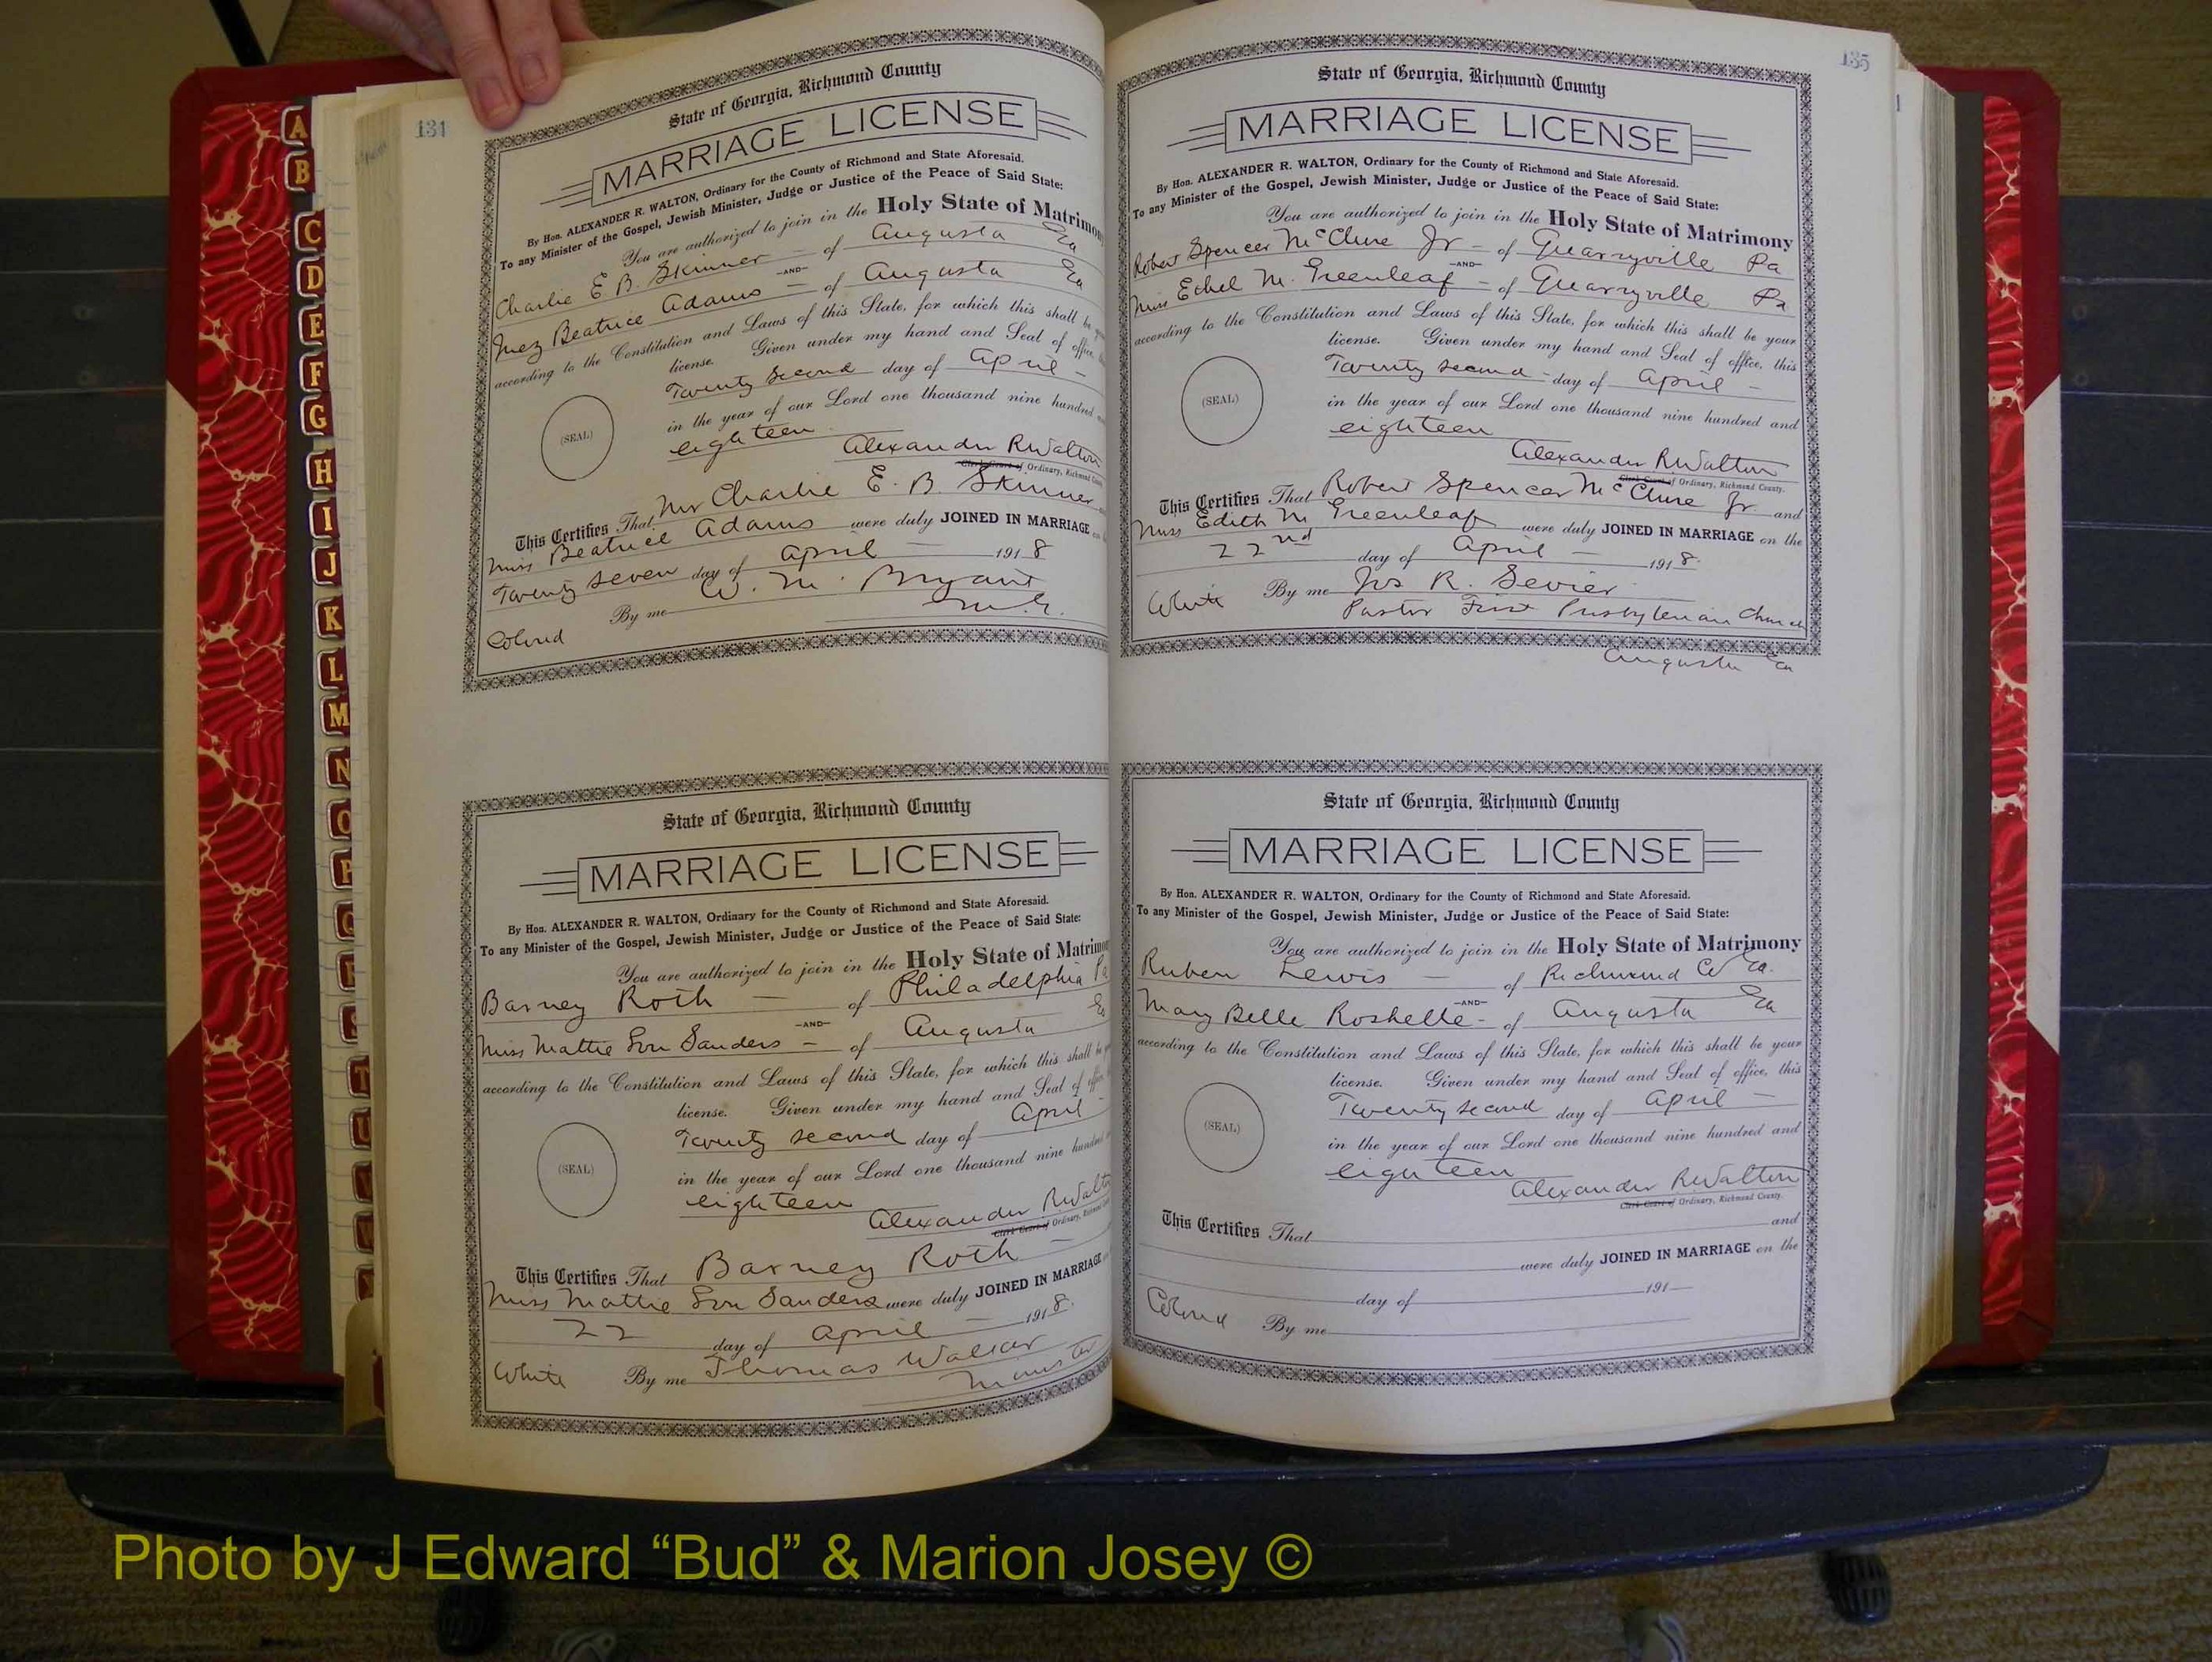 A
B
C
D
E
F
G
H
I
J
K
L
M
N
O
P
Q
R
S
T
U
V
W
134
State of Georgia, Richmond County
MARRIAGE LICENSE
By Hon. ALEXANDER R. WALTON, Ordinary for the County of Richmond and State Aforesaid.
To any Minister of the Gospel, Jewish Minister, Judge or Justice of the Peace of Said State:
You are authorized to join in the Holy State of Matrimony
Charlie E. B. Skinner of Augusta Ga
-AND-
Inez Beatrice Adams of Augusta Ga
according to the Constitution and Laws of this State, for which this shall be
license. Given under my hand and Seal of office,
Twenty Second day of April
(SEAL)
in the year of our Lord one thousand nine hundred
eighteen
Alexander R Walton
Clerk Court of Ordinary, Richmond County
This Certifies That Mr Charlie E. B Skinner
Miss Beatrice Adams were duly JOINED IN MARRIAGE
Twenty Seven day of April 1918
By me W. M. Bryant
M.G.
Colored
State of Georgia, Richmond County
MARRIAGE LICENSE
By Hon. ALEXANDER R. WALTON, Ordinary for the County of Richmond and State Aforesaid.
To any Minister of the Gospel, Jewish Minister, Judge or Justice of the Peace of Said State:
You are authorized to join in the Holy State of Matrimony
Barney Roth of Philadelphia Pa
-AND-
Miss Mattie Lou Sanders of Augusta Ga
according to the Constitution and Laws of this State, for which this shall be
license. Given under my hand and Seal of office,
Twenty Second day of April
(SEAL)
in the year of our Lord one thousand nine hundred
eighteen
Alexander R Walton
Clerk Court of Ordinary, Richmond
This Certifies That Barney Roth
Miss Mattie Lou Sanders were duly JOINED IN MARRIAGE
22 day of April 1918.
White By me Thomas Walker
Minister
135
State of Georgia, Richmond County
MARRIAGE LICENSE
By Hon. ALEXANDER R. WALTON, Ordinary for the County of Richmond and State Aforesaid.
To any Minister of the Gospel, Jewish Minister, Judge or Justice of the Peace of Said State:
You are authorized to join in the Holy State of Matrimony
Robert Spencer McClure Jr of Quarryville Pa
-AND-
Miss Ethel M. Greenleaf of Quarryville Pa
according to the Constitution and Laws of this State, for which this shall be your
license. Given under my hand and Seal of office, this
Twenty Second day of April
(SEAL)
in the year of our Lord one thousand nine hundred and
eighteen
Alexander R Walton
Clerk Court of Ordinary, Richmond County.
This Certifies That Robert Spencer McClure Jr and
Miss Edith M Greenleaf were duly JOINED IN MARRIAGE on the
22nd day of April 1918.
White By me Jos R. Sevier
Pastor First Presbyterian Church
Augusta Ga
State of Georgia, Richmond County
MARRIAGE LICENSE
By Hon. ALEXANDER R. WALTON, Ordinary for the County of Richmond and State Aforesaid.
To any Minister of the Gospel, Jewish Minister, Judge or Justice of the Peace of Said State:
You are authorized to join in the Holy State of Matrimony
Ruben Lewis of Richmond Co Ga.
-AND-
Mary Belle Roshelle of Augusta Ga
according to the Constitution and Laws of this State, for which this shall be your
license. Given under my hand and Seal of office, this
Twenty Second day of April
(SEAL)
in the year of our Lord one thousand nine hundred and
eighteen
Alexander R Walton
Clerk Court of Ordinary, Richmond County.
This Certifies That and
were duly JOINED IN MARRIAGE on the
day of 191
Colored By me
Photo by J Edward “Bud” & Marion Josey ©